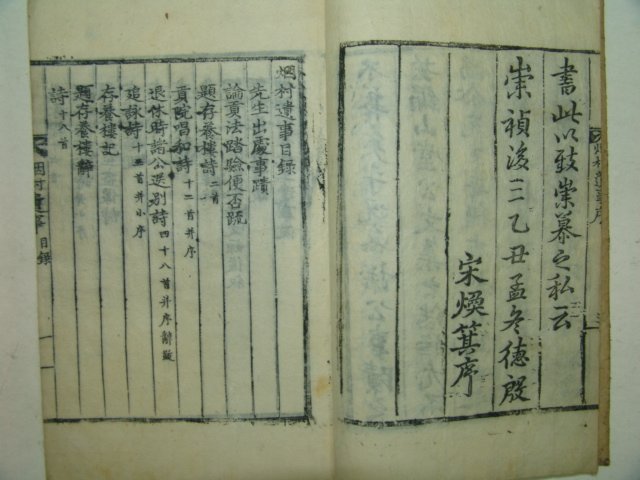 書此以致崇慕之私云
崇禎後三乙丑孟冬德殷
宋煥箕序
烟村遺事目錄
先生出處事蹟
論貢法踏驗便否疏
題存養樓詩二首
貢院唱和詩十二首并序
退休時諸公送別詩四十八首并序
追詠詩十三首并小序
存養樓記
題存養樓
詩十八首
烟村遺事 目錄 一